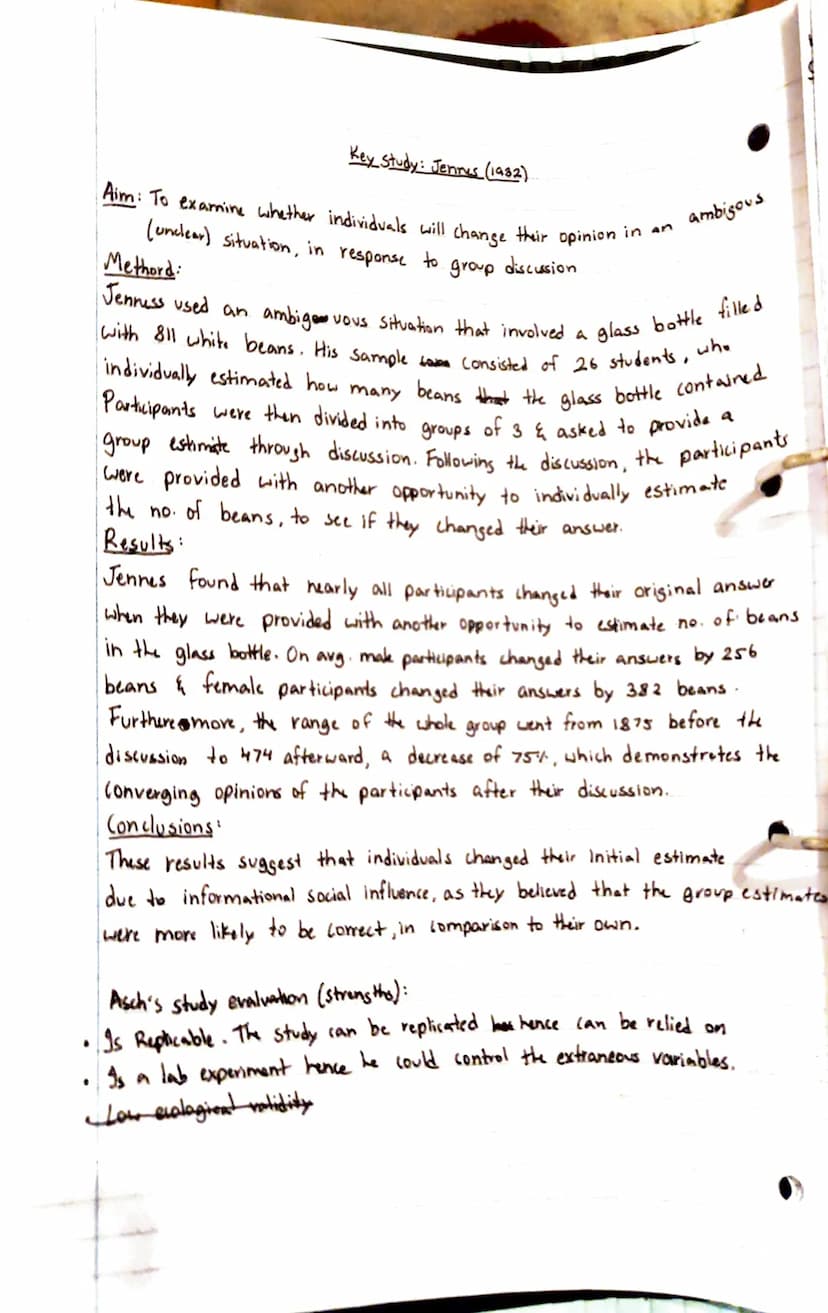 Key Study: Jennes (1932)
Aim: To examine whether individuals will change their opinion in an ambigous
(unclear) situation, in response to group discussion
Methord:
Jenness used an ambiguous situation that involved a glass bottle filled
with 811 white beans. His sample consisted of 26 students, who
individually estimated how many beans that the glass bottle contained
Participants were then divided into groups of 3 & asked to provide a
group estimate through discussion. Following the discussion, the participants
were provided with another opportunity to individually estimate
the no. of beans, to see if they changed their answer.
Results:
Jennes found that nearly all participants changed their original answer
when they were provided with another opportunity to estimate no. of beans
in the glass bottle. On avg. male participants changed their answers by 256
beans & female participants changed their answers by 382 beans.
Furthermore, the range of the whole group went from 1875 before the
discussion to 474 afterward, a decrease of 75%, which demonstrates the
converging opinions of the participants after their discussion.
Conclusions:
These results suggest that individuals changed their initial estimate
due to informational social influence, as they believed that the group estimates
were more likely to be correct, in comparison to their own.
Asch's study evaluation (strengths):
• Is Replicable. The study can be replicated hence can be relied on
• Is a lab experiment hence he could control the extraneous variables.
• Low ecological validity